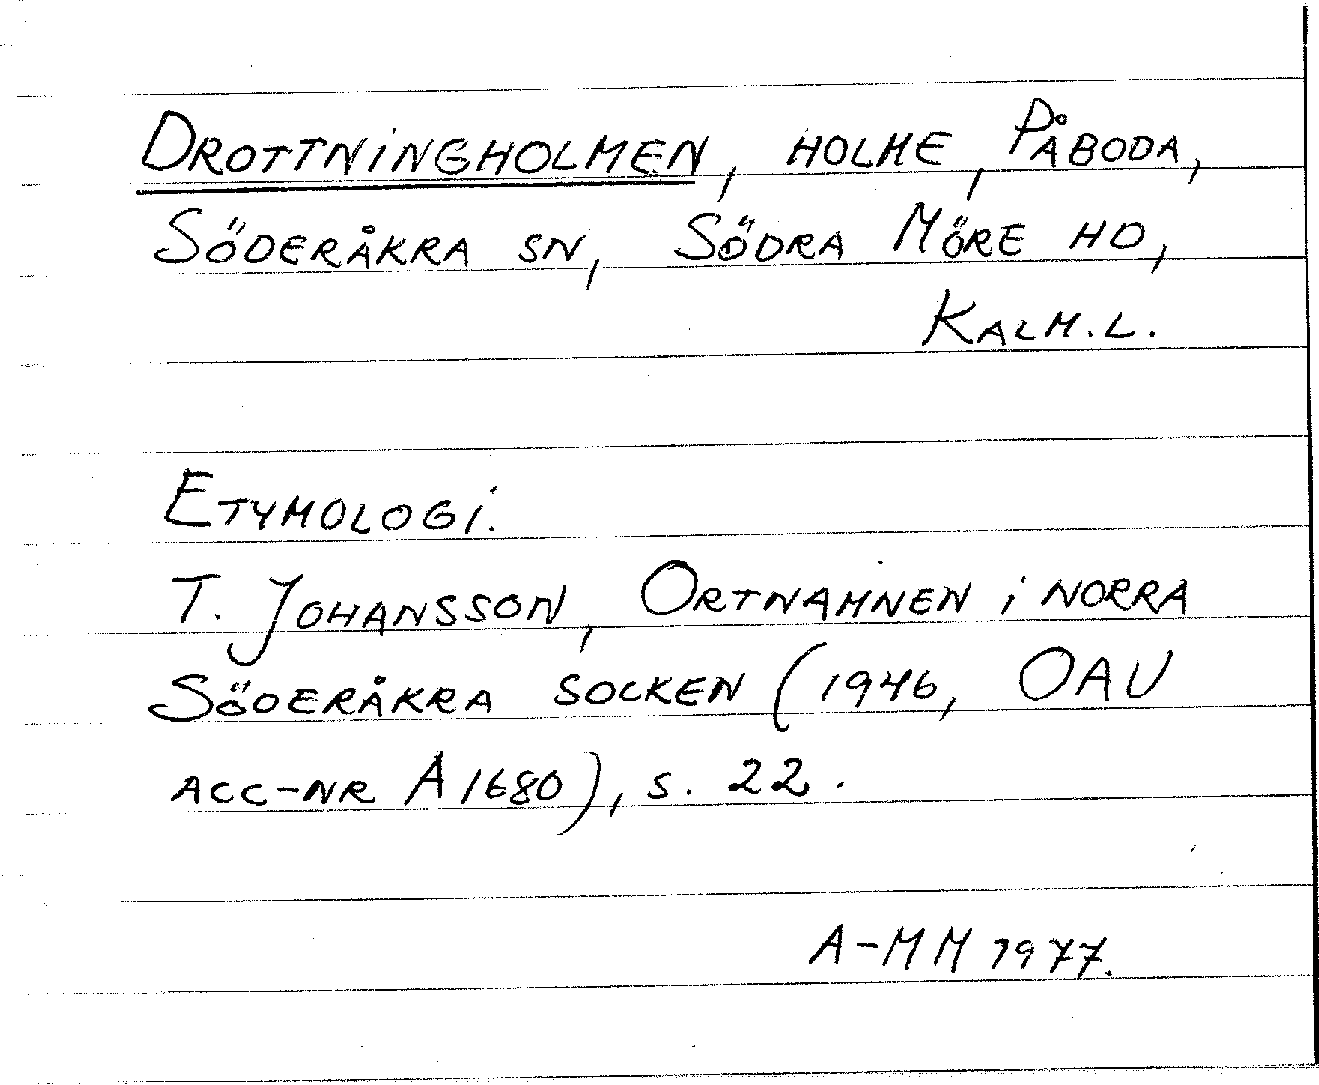 DROTTNINGHOLMEN, HOLME, PÅBODA,
SÖDERÅKRA SN, SÖDRA MÖRE HD,
KALM.L.
ETYMOLOGI.
T. JOHANSSON, ORTNAMNEN i NORRA
SÖDERÅKRA SOCKEN (1946, OAU
ACC-NR A 1680), S. 22.
A-MM 1977.